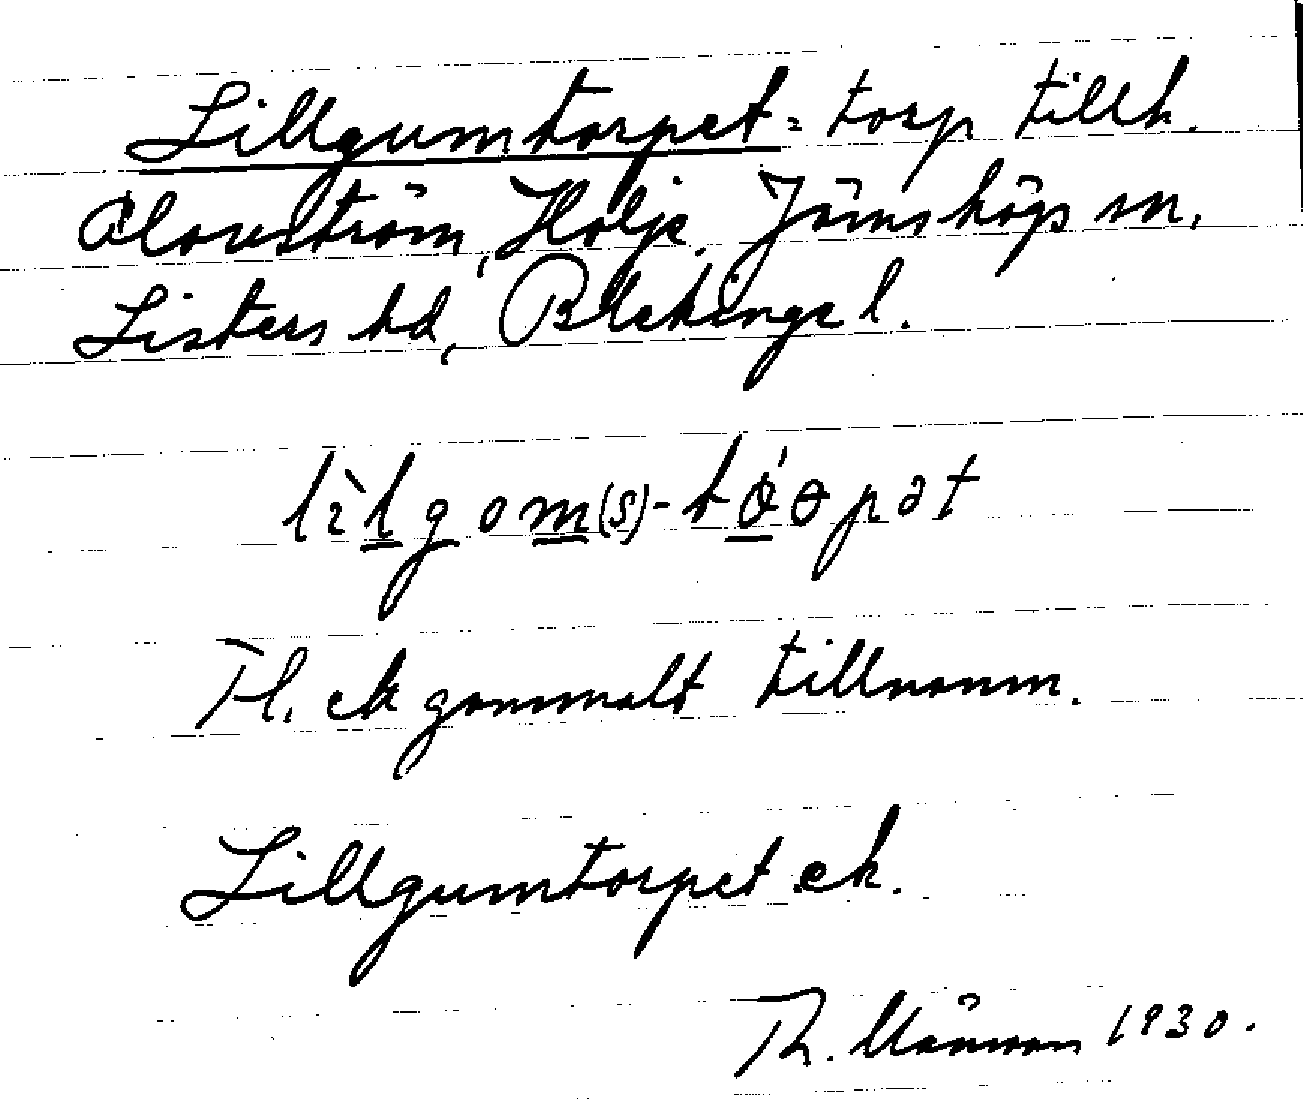 Lillgumtorpet = torp tillh.
Olovström, Holje. Jämshögs sn,
Listers hd, Blekinge l.
lìlgom(s)-tǿɵpət
Fl. ek gammalt tillnamn.
Lillgumtorpet ek.
Th. Månsson 1930.